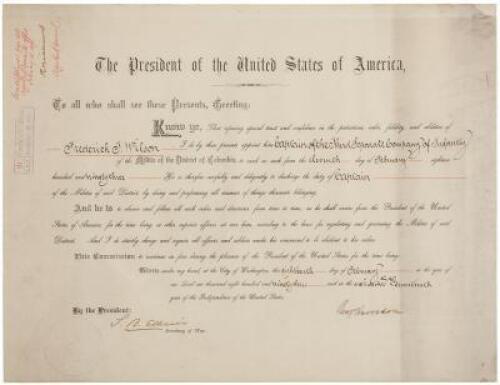 The President of the United States of America,
To all who shall see these Presents, Greeting:
Know ye, That reposing special trust and confidence in the patriotism, valor, fidelity, and abilities of
Frederick J. Wilson I do by these presents appoint him Captain of the Third Separate Company of Infantry
of the Militia of the District of Columbia, to rank as such from the eleventh day of February eighteen
hundred and ninety three He is therefore carefully and diligently to discharge the duty of Captain
of the Militia of said District, by doing and performing all manner of things thereunto belonging.
And he is to observe and follow all such orders and directions from time to time, as he shall receive from the President of the United
States of America, for the time being, or other superior officers set over him, according to the laws for regulating and governing the Militia of said
District. And I do strictly charge and require all officers and soldiers under his command to be obedient to his orders.
This Commission to continue in force during the pleasure of the President of the United States for the time being.
Witness under my hand, at the City of Washington, this day of February in the year of
our Lord one thousand eight hundred and ninety three and in the one hundred and seventeenth
year of the Independence of the United States.
Benj Harrison
By the President:
S. B. Elkins
Secretary of War.